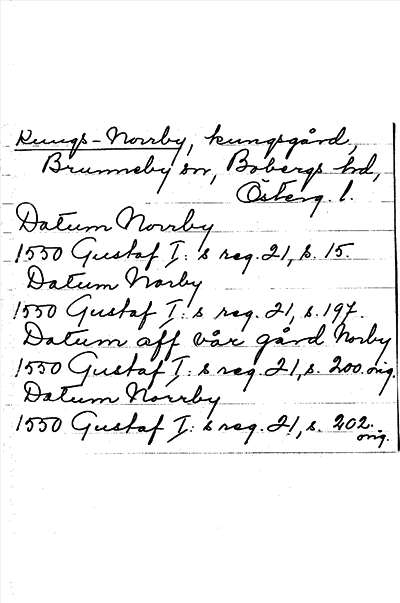 Kungs-Norrby, kungsgård,
Brunneby sn, Bobergs hd,
Österg. l.
Datum Norrby
1550 Gustaf I:s reg. 21, s. 15.
Datum Norby
1550 Gustaf I:s reg. 21, s. 197.
Datum aff vår gård Norby
1550 Gustaf I:s reg. 21, s. 200. orig.
Datum Norrby
1550 Gustaf I:s reg. 21, s. 202.
orig.